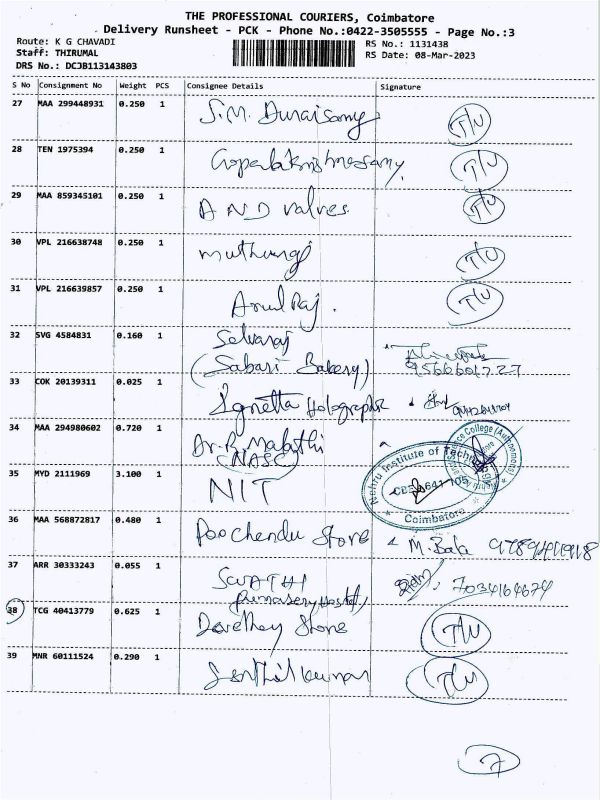 THE PROFESSIONAL COURIERS, Coimbatore
Delivery Runsheet - PCK - Phone No.:0422-3505555 - Page No.:3
Route: K G CHAVADI
Staff: THIRUMAL
DRS No.: DCJB113143803
RS No.: 1131438
RS Date: 08-Mar-2023
S No Consignment No Weight PCS Consignee Details Signature
27 MAA 299448931 0.250 1 S.M. Duraisamy T/U
28 TEN 1975394 0.250 1 T/U
29 MAA 859345101 0.250 1 A N D valves T/U
30 VPL 216638748 0.250 1 T/U
31 VPL 216639857 0.250 1 Arul Raj. T/U
32 SVG 4584831 0.160 1 Selvaraj
(Sabari Bakery)
33 COK 20139311 0.025 1 Holographik
34 MAA 294980602 0.720 1 Dr. R. Malathi
(NASC)
35 MYD 2111969 3.100 1 NIT
Nehru Institute of Technology
Coimbatore
Science College (Autonomous)
36 MAA 568872817 0.480 1 Poochendu Store M. Bala
37 ARR 30333243 0.055 1 SWATHI 7034164674
38 TCG 40413779 0.625 1 Store T/U
39 MNR 60111524 0.290 1 Senthilkumar T/U
7